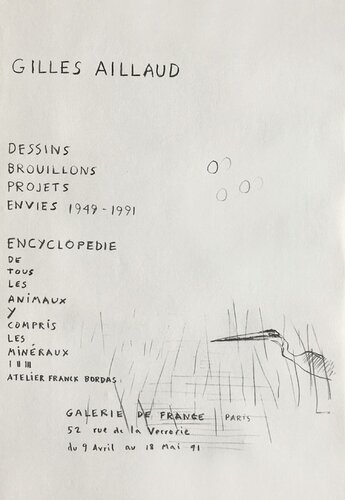 GILLES AILLAUD
DESSINS
BROUILLONS
PROJETS
ENVIES 1949-1991
ENCYCLOPEDIE
DE
TOUS
LES
ANIMAUX
Y
COMPRIS
LES
MINÉRAUX
I II III
ATELIER FRANCK BORDAS
GALERIE DE FRANCE PARIS
52 rue de la Verrerie
du 9 Avril au 18 Mai 91